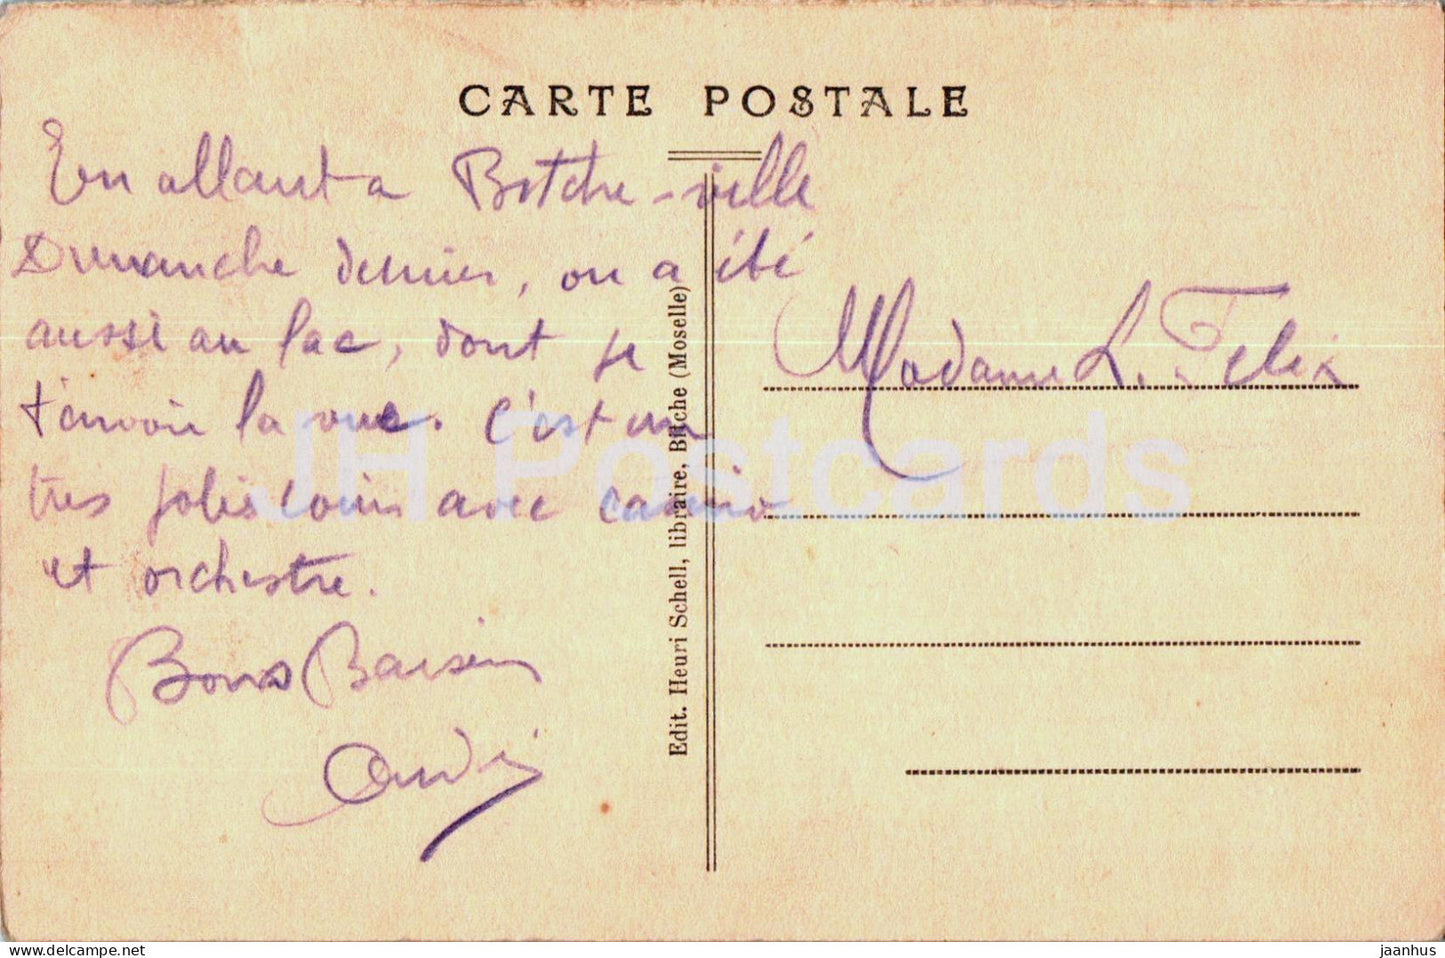 CARTE POSTALE
En allant a Bitche-ville
Dimanche dernier, on a été
aussi au lac, dont je
t'envoie la vue. C'est un
tres joli coin avec casino
et orchestre.
Bons Baisers
André
Madame L. Felix
Edit. Heuri Schell, libraire, Bitche (Moselle)
JH Postcards
jaanhus
delcampe.net